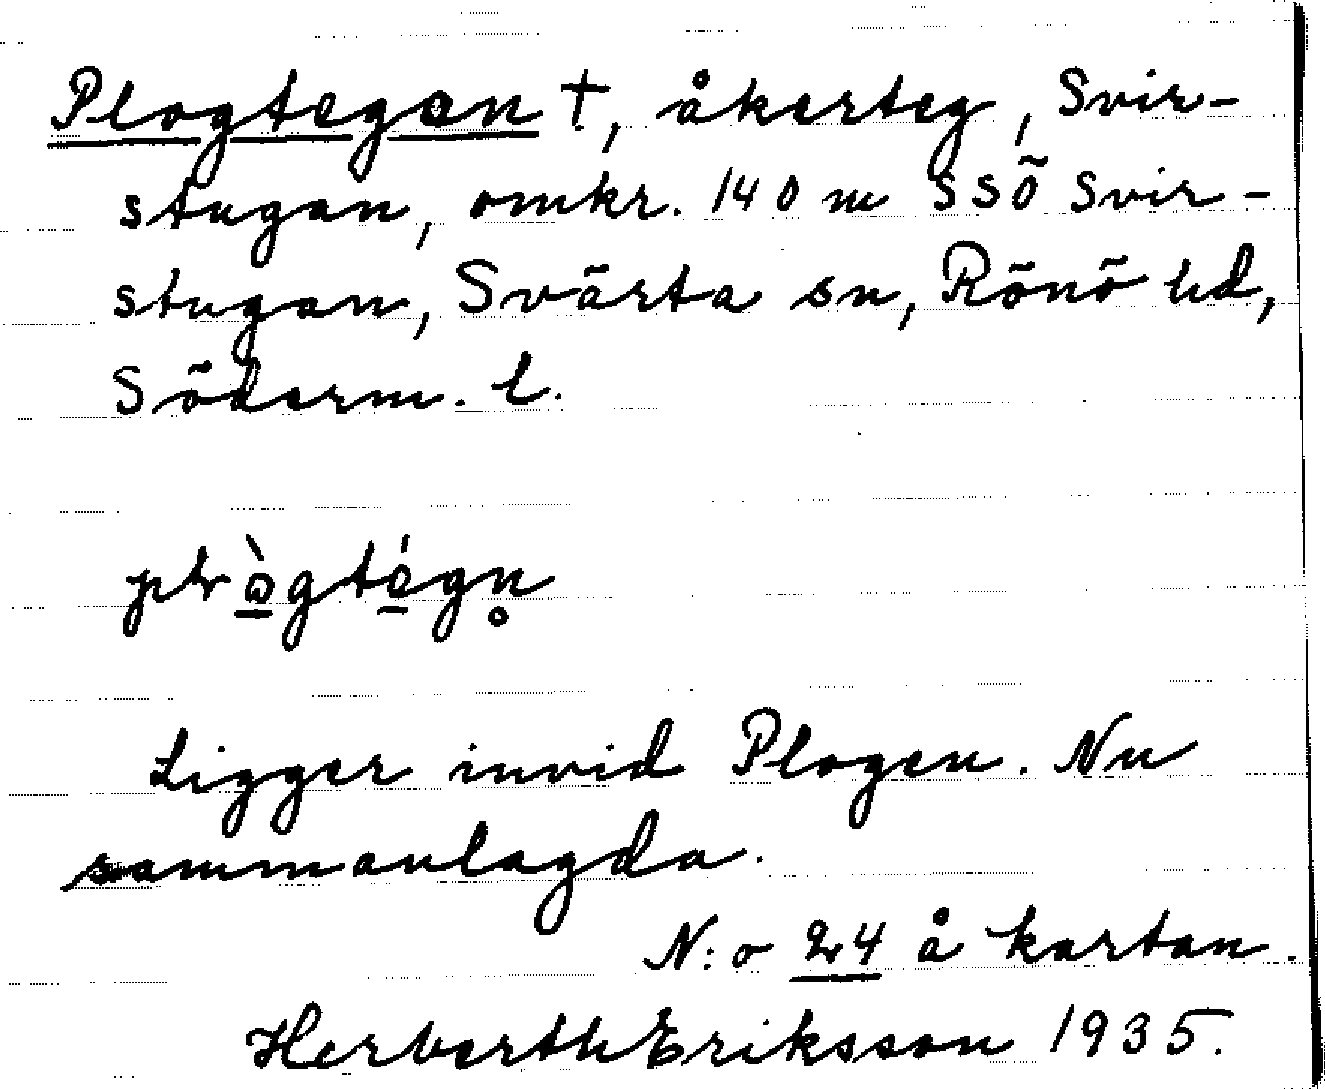 Plogtegen †, åkerteg, Svir-
stugan, omkr. 140 m SSÖ Svir-
stugan, Svärta sn, Rönö hd,
Söderm. l.
plògtégn̥
Ligger invid Plogen. Nu
sammanlagda.
N:o 24 å kartan.
Herberth Eriksson 1935.